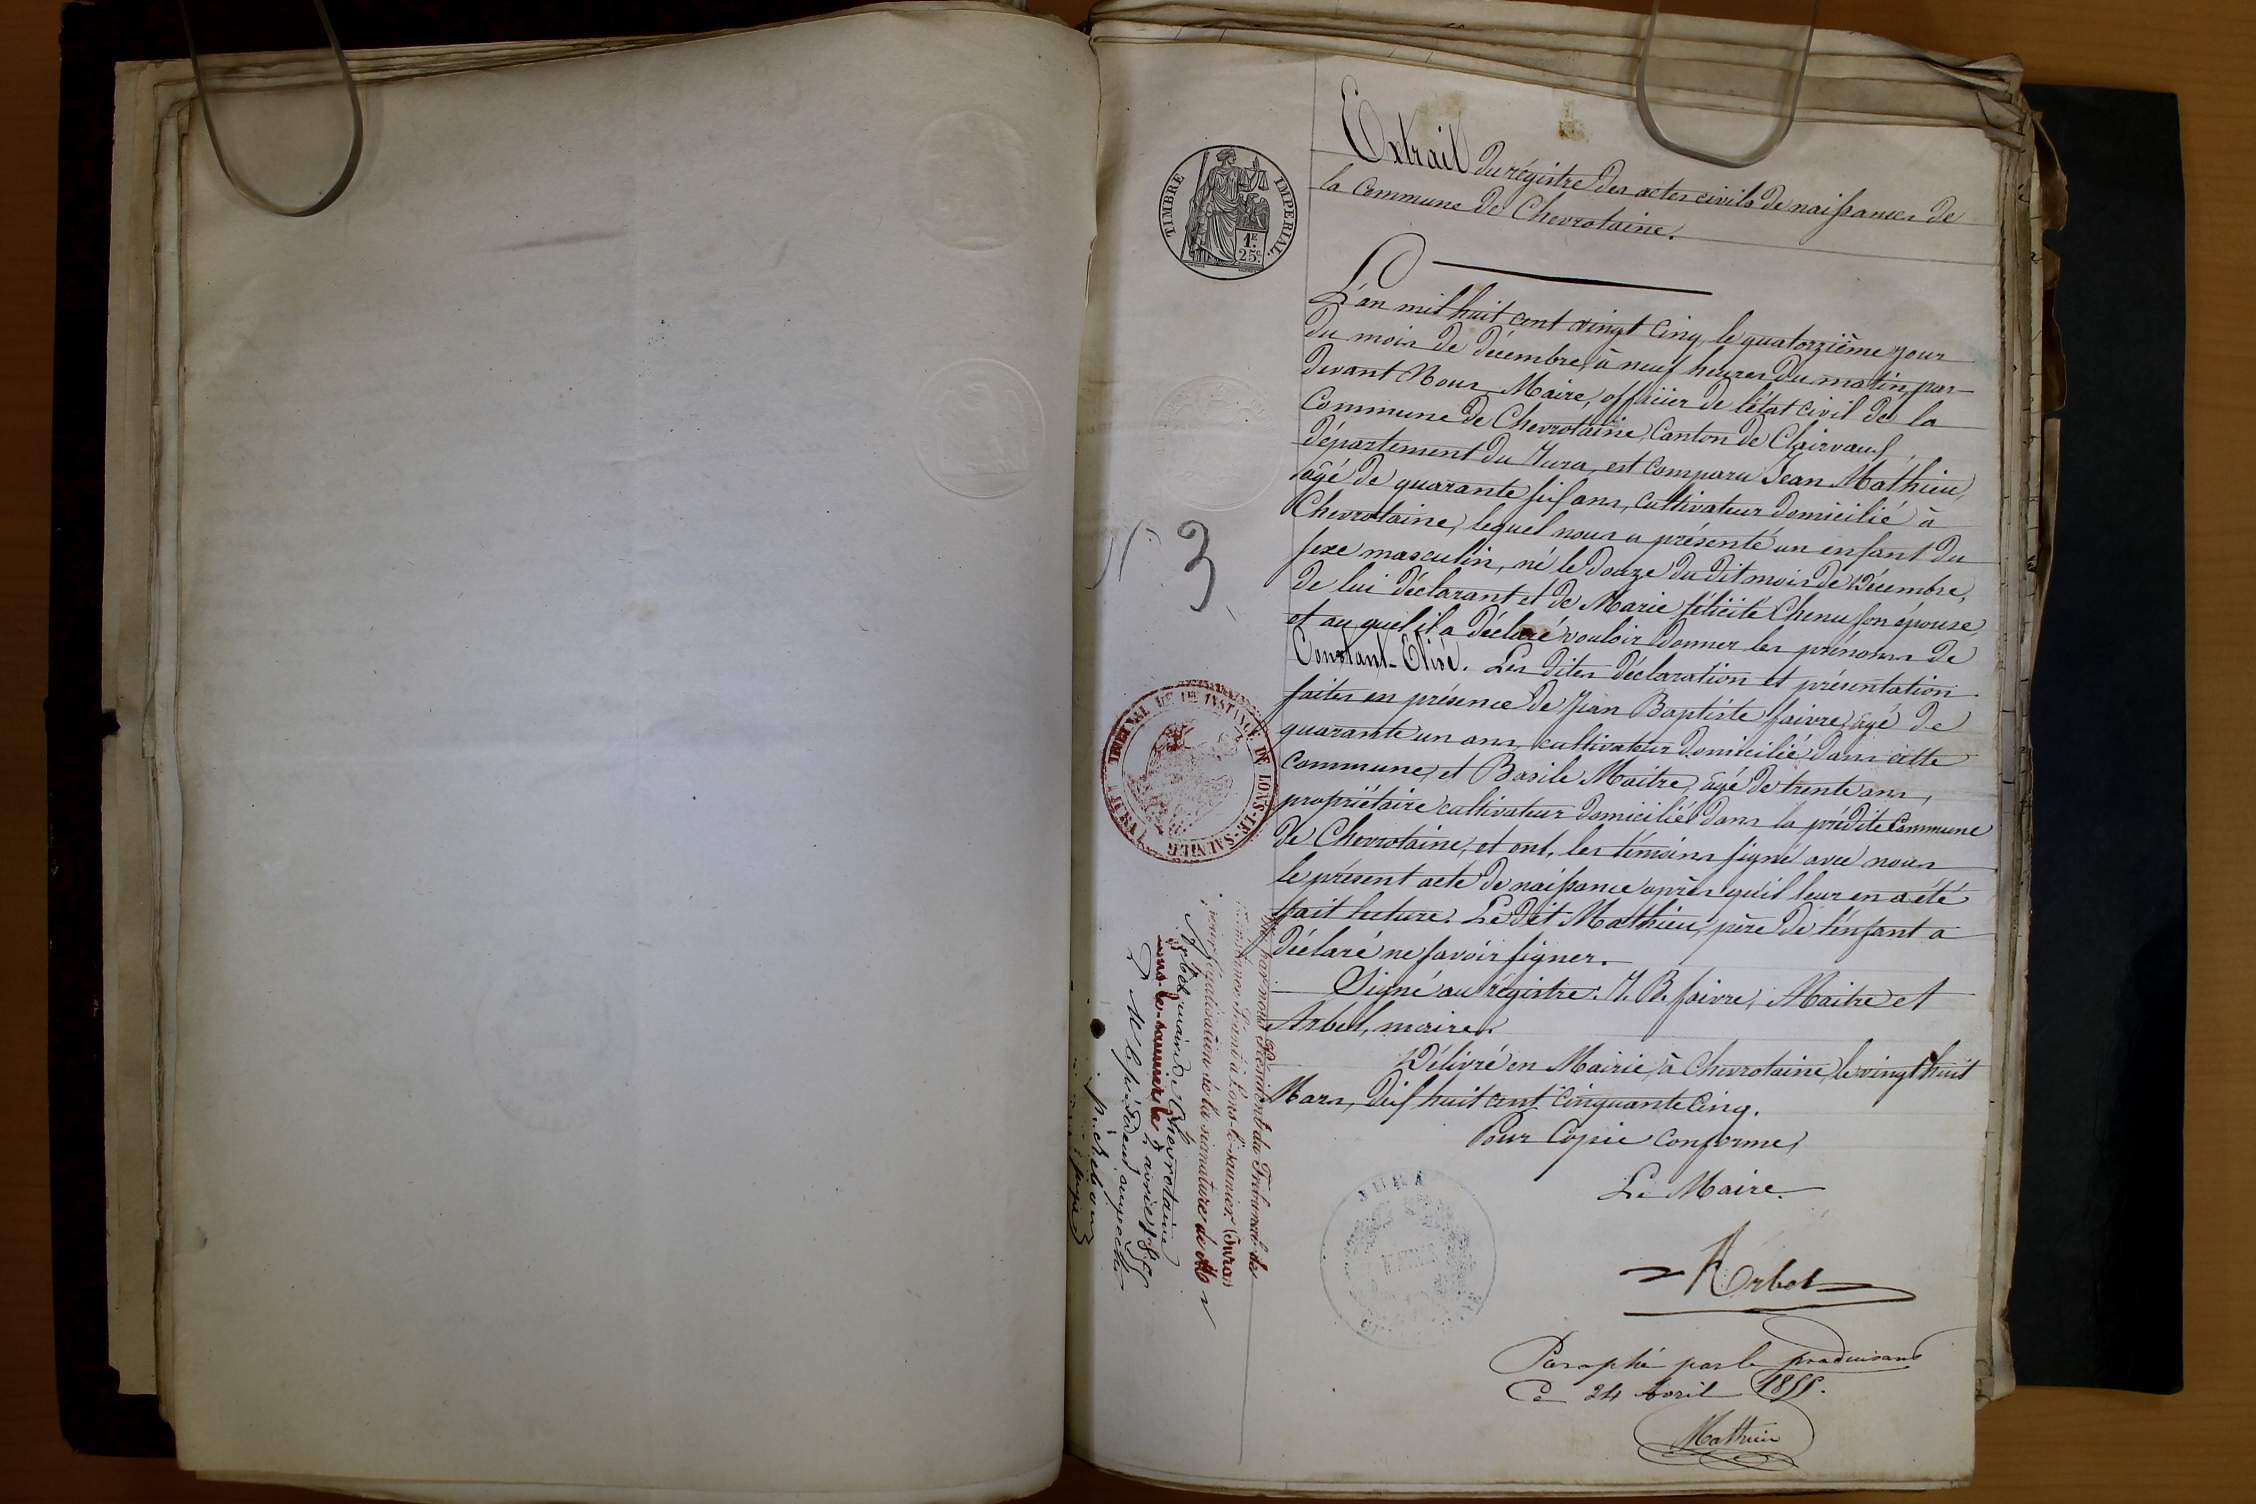 TIMBRE IMPERIAL.
1F.
25c.
Extrait du régistre des actes civils de naissances de
la Commune de Chevrotaine.
L'an mil huit cent vingt cinq, le quatorzième jour
du mois de décembre, à neuf heures du matin, par-
devant Nous, Maire, officier de l'état civil de la
Commune de Chevrotaine, Canton de Clairvaux,
département du Jura, est comparu Jean Mathieu,
âgé de quarante six ans, cultivateur domicilié à
Chevrotaine, lequel nous a présenté un enfant du
sexe masculin, né le douze du dit mois de Décembre,
de lui déclarant et de Marie félicité Chenu son épouse,
et au quel il a déclaré vouloir donner les prénoms de
Constant-Elisé. Les dites déclaration et présentation
faites en présence de Jean Baptiste faivre, âgé de
quarante un ans, cultivateur domicilié dans cette
Commune, et Basile Maitre, âgé de trente ans,
propriétaire cultivateur domicilié dans la prédite Commune
de Chevrotaine, et ont, les témoins signé avec nous
le présent acte de naissance après qu'il leur en a été
fait lecture. Le dit Mathieu, père de l'enfant a
déclaré ne savoir signer.
Signé au régistre: J. B. faivre, Maitre et
Arbel, maire.
Délivré en Mairie, à Chevrotaine, le vingt huit
Mars, dix huit cent cinquante cinq.
Pour Copie Conforme,
Le Maire.
Arbel
Paraphé par le produisant
Ce 24 Avril 1855.
Mathieu
N° 3
TRIBUNAL DE 1RE INSTANCE DE LONS-LE-SAUNIER (JURA)
par nous Président du Tribunal de
instance séant à Lons-le-saunier (Jura)
pour légalisation de la signature de M r
Arbel, maire de Chevrotaine
Lons-le-saunier le avril 1855
JURA
MAIRIE